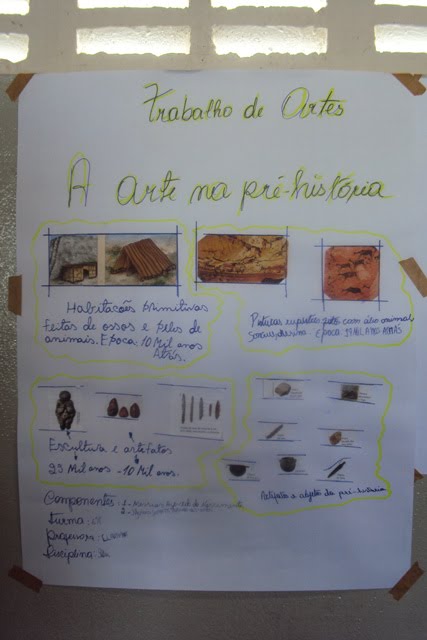 Trabalho de Artes
A arte na pré-história
Habitações primitivas
feitas de ossos e peles de
animais. Época: 10 Mil anos
Atrás.
Pinturas rupestres com óleo animal
Época
Escultura e artefatos
23 Mil anos - 10 Mil anos.
Artefatos e objetos da pré-história
Componentes: 1 -
2 -
Turma:
Professora:
Disciplina: